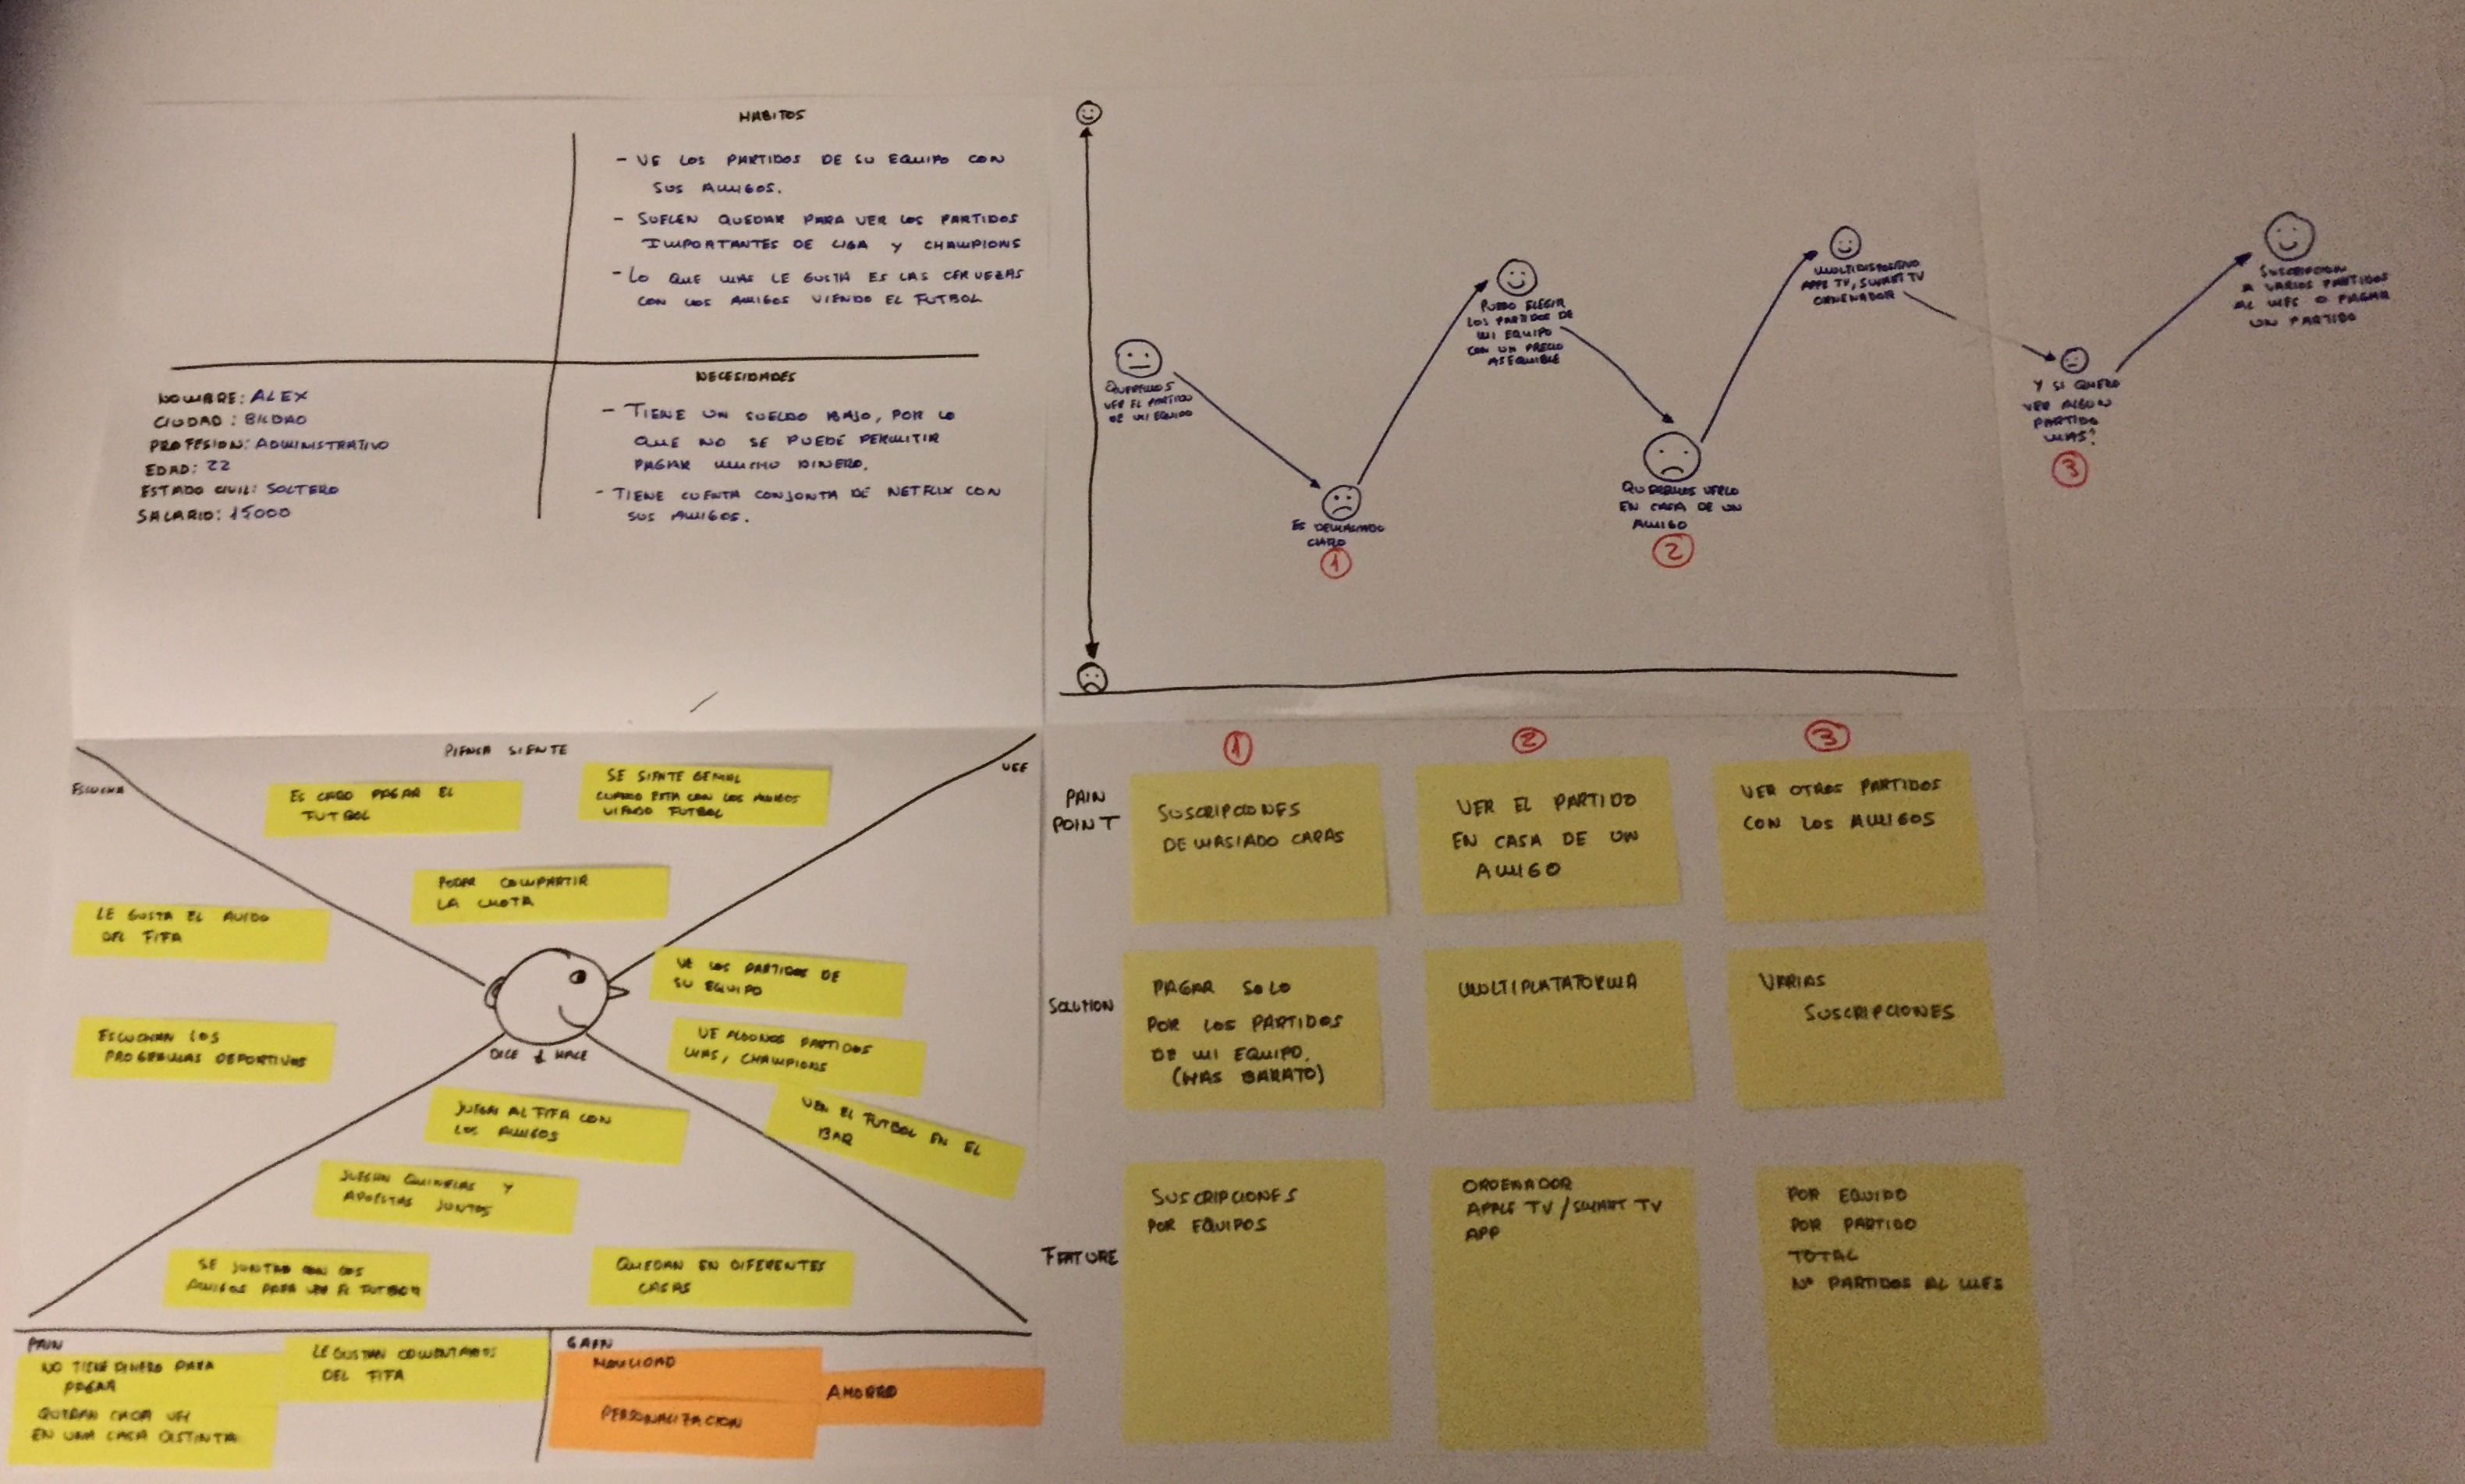 HABITOS
- VE LOS PARTIDOS DE SU EQUIPO CON
SUS AMIGOS.
- SUELEN QUEDAR PARA VER LOS PARTIDOS
IMPORTANTES DE LIGA Y CHAMPIONS
- LO QUE MAS LE GUSTA ES LAS CERVEZAS
CON LOS AMIGOS VIENDO EL FUTBOL
NOMBRE: ALEX
CIUDAD: BILBAO
PROFESION: ADMINISTRATIVO
EDAD: 22
ESTADO CIVIL: SOLTERO
SALARIO: 15000
NECESIDADES
- TIENE UN SUELDO BAJO, POR LO
QUE NO SE PUEDE PERMITIR
PAGAR MUCHO DINERO.
- TIENE CUENTA CONJONTA DE NETFLIX CON
SUS AMIGOS.
QUEREMOS
VER EL PARTIDO
DE MI EQUIPO
ES DEMASIADO
CARO
1
PUEDO ELEGIR
LOS PARTIDOS DE
MI EQUIPO
CON UN PRECIO
ASEQUIBLE
QUEREMOS VERLO
EN CASA DE UN
AMIGO
2
MULTIDISPOSITIVO
APPLE TV, SMART TV
ORDENADOR
Y SI QUIERO
VER ALGUN
PARTIDO
MAS?
3
SUSCRIPCION
A VARIOS PARTIDOS
AL MES O PAGAR
UN PARTIDO
PIENSA SIENTE
ESCUCHA
VEE
ES CARO PAGAR EL
FUTBOL
SE SIENTE GENIAL
CUANDO ESTA CON LOS AMIGOS
VIENDO FUTBOL
PODER COMPARTIR
LA CUOTA
LE GUSTA EL AUIDO
DEL FIFA
ESCUCHAN LOS
PROGRAMAS DEPORTIVOS
VE LOS PARTIDOS DE
SU EQUIPO
VE ALGUNOS PARTIDOS
MAS, CHAMPIONS
VEN EL FUTBOL EN EL
BAR
DICE Y HACE
JUEGAN AL FIFA CON
LOS AMIGOS
JUEGAN QUINIELAS Y
APUESTAS JUNTOS
SE JUNTAN CON LOS
AMIGOS PARA VER EL FUTBOL
QUEDAN EN DIFERENTES
CASAS
PAIN
NO TIENE DINERO PARA
PAGAR
LE GUSTAN COMENTARIOS
DEL FIFA
QUEDAN CADA VEZ
EN UNA CASA DISTINTA
GAIN
MOVILIDAD
AHORRO
PERSONALIZACION
1
2
3
PAIN
POINT
SUSCRIPCIONES
DEMASIADO CARAS
VER EL PARTIDO
EN CASA DE UN
AMIGO
VER OTROS PARTIDOS
CON LOS AMIGOS
SOLUTION
PAGAR SOLO
POR LOS PARTIDOS
DE MI EQUIPO.
(MAS BARATO)
MULTIPLATAFORMA
VARIAS
SUSCRIPCIONES
FEATURE
SUSCRIPCIONES
POR EQUIPOS
ORDENADOR
APPLE TV / SMART TV
APP
POR EQUIPO
POR PARTIDO
TOTAL
Nº PARTIDOS AL MES